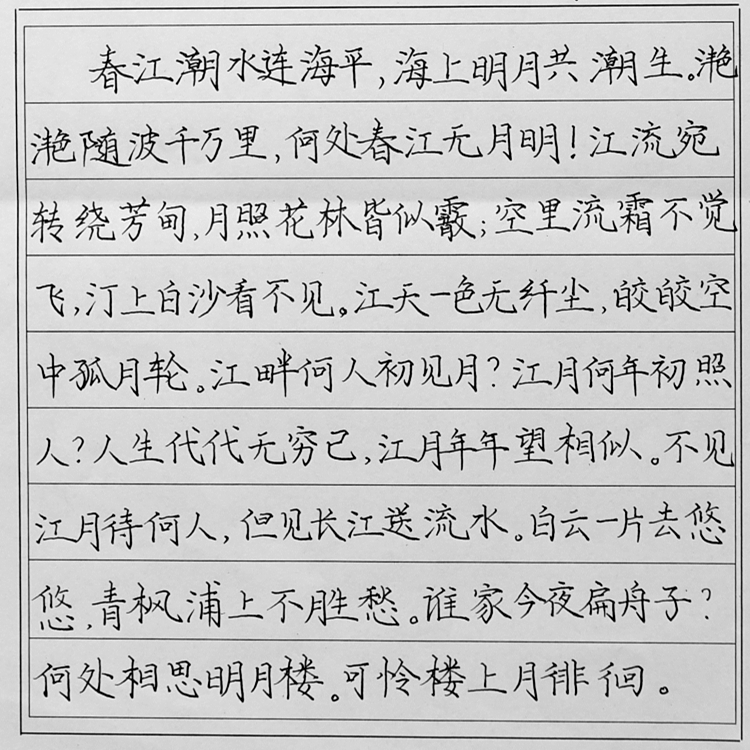 春江潮水连海平,海上明月共潮生。滟
滟随波千万里,何处春江无月明!江流宛
转绕芳甸,月照花林皆似霰;空里流霜不觉
飞,汀上白沙看不见。江天一色无纤尘,皎皎空
中孤月轮。江畔何人初见月?江月何年初照
人?人生代代无穷已,江月年年望相似。不见
江月待何人,但见长江送流水。白云一片去悠
悠,青枫浦上不胜愁。谁家今夜扁舟子?
何处相思明月楼。可怜楼上月徘徊。